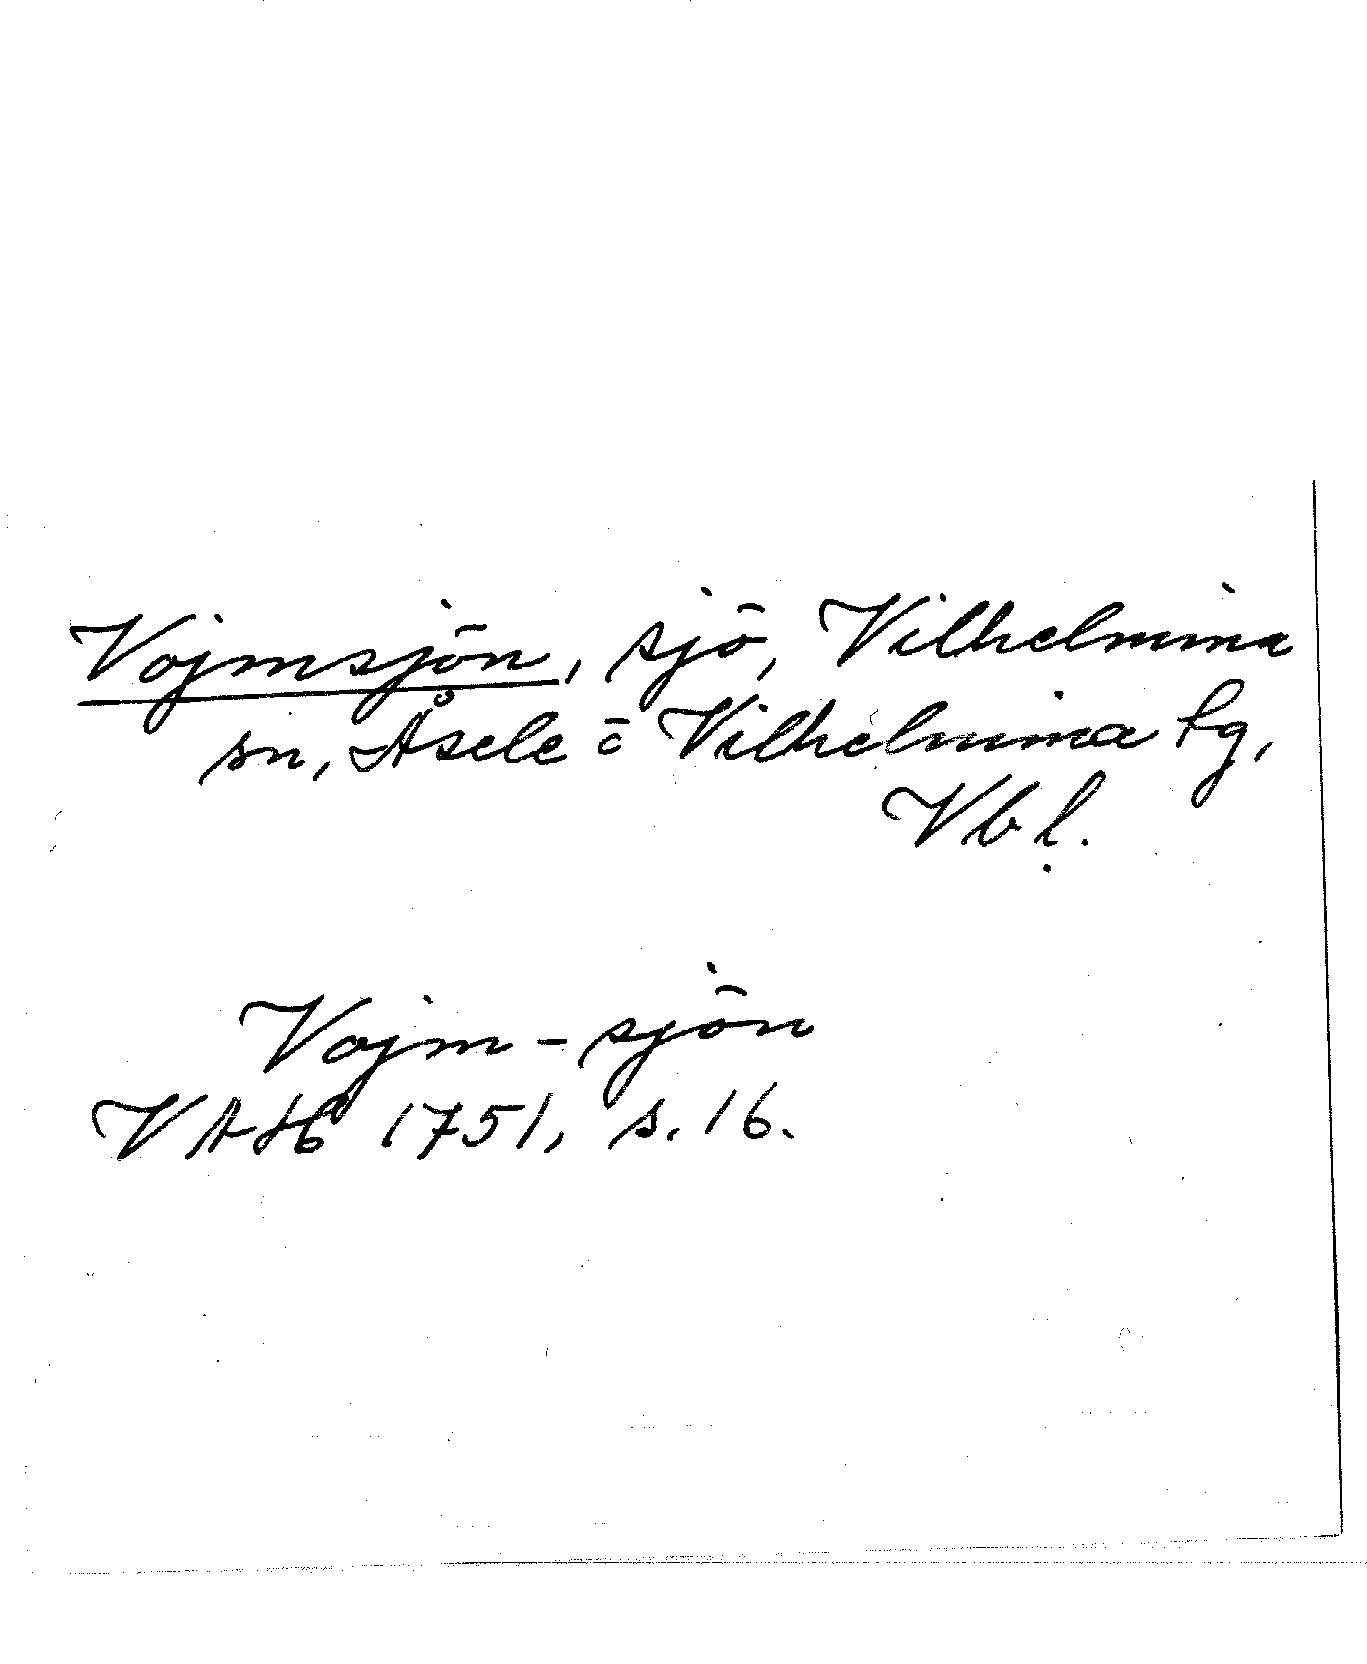 Vojmsjön, sjö, Vilhelmina
sn, Åsele o Vilhelmina tg,
Vb l.
Vojm-sjön
VAH 1751, s. 16.